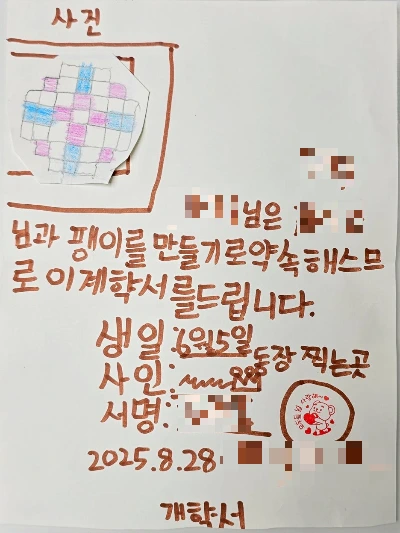 사진
님은
님과 팽이를 만들기로 약속해스므
로 이 계학서를 드립니다.
생일:6월5일
사인:
동장 찍는곳
서명:
2025.8.28
개학서